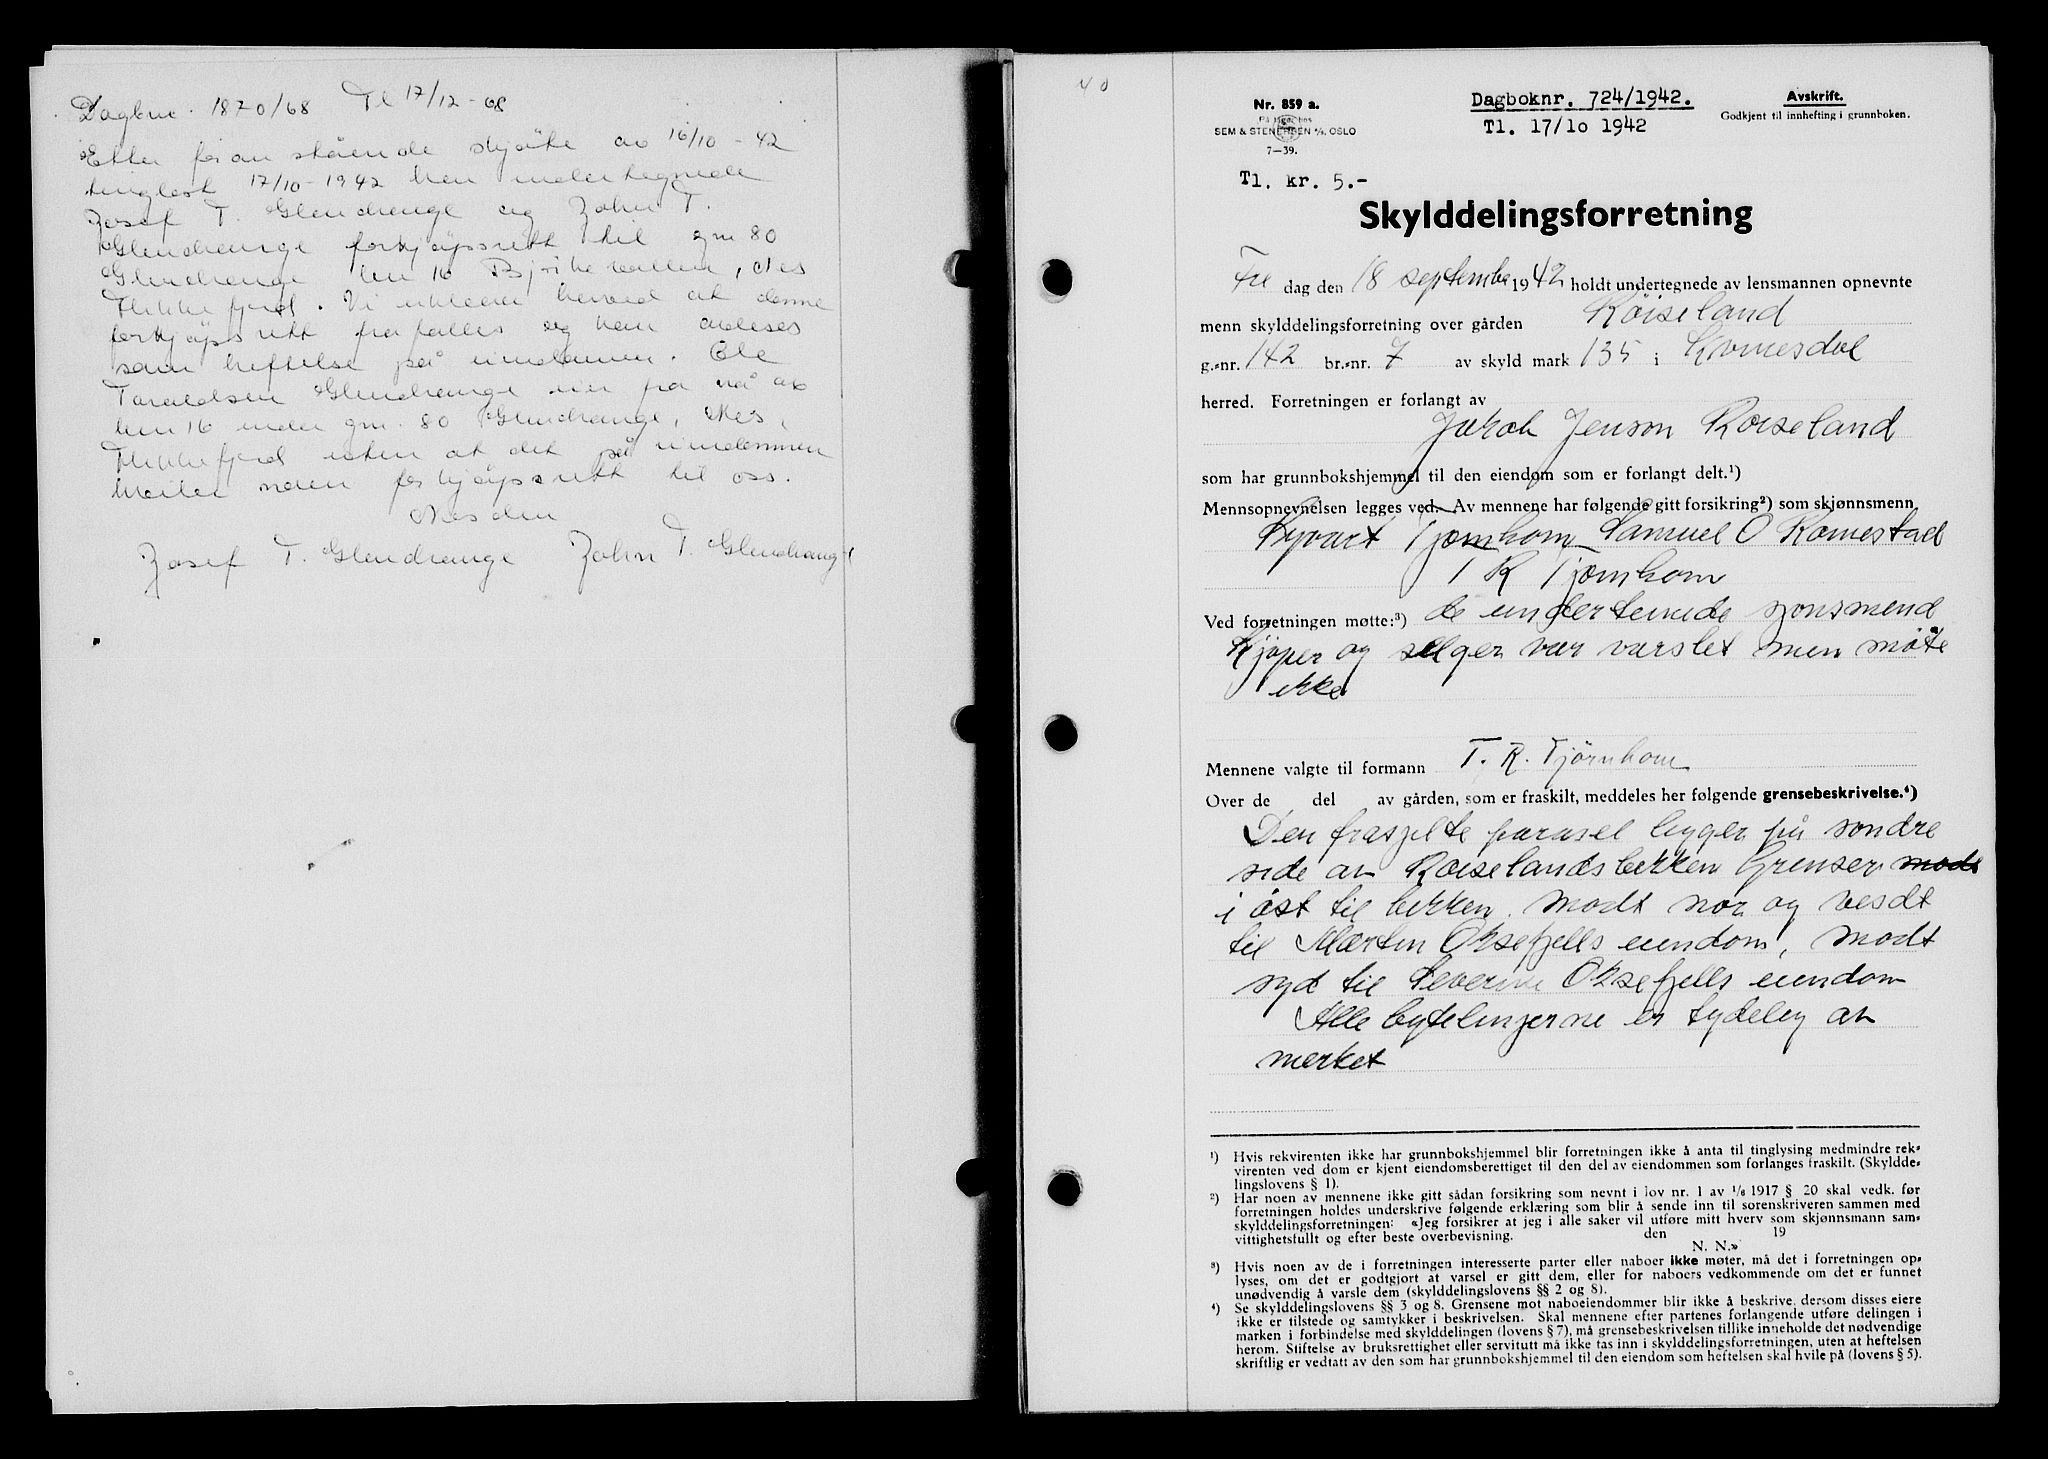 Dagbnr. 1870/68 Tl 17/12-68
Etter foranstående skjøte av 16/10-42
tinglest 17/10-1942 har undertegnede
Josef T. Glendrange og John T.
Glendrange forkjøpsrett til gnr 80
Glendrange bnr 16 Bjørkevallen, Nes
Flekkefjord. Vi erklærer herved at denne
forkjøpsrett frafalles og kan avleses
som heftelse på eiendommen. Ole
Taraldsen Glendrange eier fra nå av
bnr 16 under gnr. 80 Glendrange, Nes,
Flekkefjord uten at det på eiendommen
hviler noen forkjøpsrett til oss.
Nes den
Josef T. Glendrange John T. Glendrange
40
Nr. 859 a.
På lager hos
SEM & STENERSEN A/S, OSLO
7—39.
Dagboknr. 724/1942.
Tl. 17/10 1942
Avskrift.
Godkjent til innhefting i grunnboken.
Tl. kr. 5.-
Skylddelingsforretning
Fre dag den 18 september 1942 holdt undertegnede av lensmannen opnevnte
menn skylddelingsforretning over gården Röiseland
g.-nr. 142 br.-nr. 7 av skyld mark 135 i Kvinesdal
herred. Forretningen er forlangt av
Jakob Jenson Roiseland
som har grunnbokshjemmel til den eiendom som er forlangt delt.¹)
Mennsopnevnelsen legges ved. Av mennene har følgende gitt forsikring²) som skjønnsmenn
Syvart Tjørnhom Samuel O Ramestad
T R Tjørnhom
Ved forretningen møtte:³) de undertenede sjonsmend
Kjöper og selger var varslet men møte
ikke
Mennene valgte til formann T. R. Tjörnhom
Over de del av gården, som er fraskilt, meddeles her følgende grensebeskrivelse.⁴)
Den frasjilte parasel ligger på söndre
side av Roiselandsbekken Grenser modt
i öst til bekken. modt nor og vesdt
til Martin Oksefjells eiendom, modt
syd til Severine Oksefjells eiendom
Alle bytelinjerne er tydelig av
merket
¹) Hvis rekvirenten ikke har grunnbokshjemmel blir forretningen ikke å anta til tinglysing medmindre rek-
virenten ved dom er kjent eiendomsberettiget til den del av eiendommen som forlanges fraskilt. (Skyldde-
lingslovens § 1).
²) Har noen av mennene ikke gitt sådan forsikring som nevnt i lov nr. 1 av 1/6 1917 § 20 skal vedk. før
forretningen holdes underskrive følgende erklæring som blir å sende inn til sorenskriveren sammen med
skylddelingsforretningen: «Jeg forsikrer at jeg i alle saker vil utføre mitt hverv som skjønnsmann sam-
vittighetsfullt og efter beste overbevisning. den 19
N. N.»
³) Hvis noen av de i forretningen interesserte parter eller naboer ikke møter, må det i forretningen op-
lyses, om det er godtgjort at varsel er gitt dem, eller for naboers vedkommende om det er funnet
unødvendig å varsle dem (skylddelingslovens §§ 2 og 8).
⁴) Se skylddelingslovens §§ 3 og 8. Grensene mot naboeiendommer blir ikke å beskrive, dersom disses eiere
ikke er tilstede og samtykker i beskrivelsen. Skal mennene efter partenes forlangende utføre delingen i
marken i forbindelse med skylddelingen (lovens § 7), må grensebeskrivelsen tillike inneholde det nødvendige
herom. Stiftelse av bruksrettighet eller servitutt må ikke tas inn i skylddelingsforretningen, uten at heftelsen
skriftlig er vedtatt av den som har grunnbokshjemmel til den eiendom som heftelsen skal hvile på (lovens § 5).